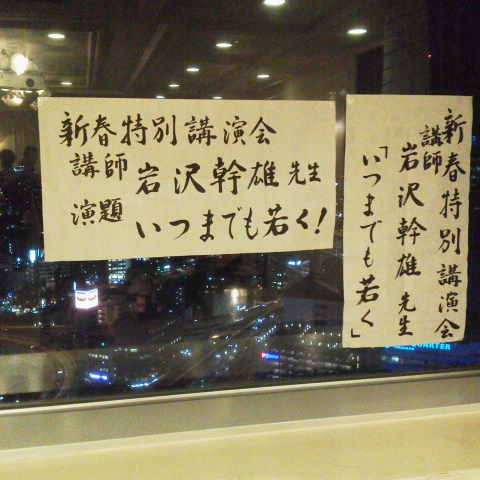 新春特別講演会
講師 岩沢幹雄先生
演題 いつまでも若く!
新春特別講演会
講師 岩沢幹雄先生
「いつまでも若く」
QUARTER